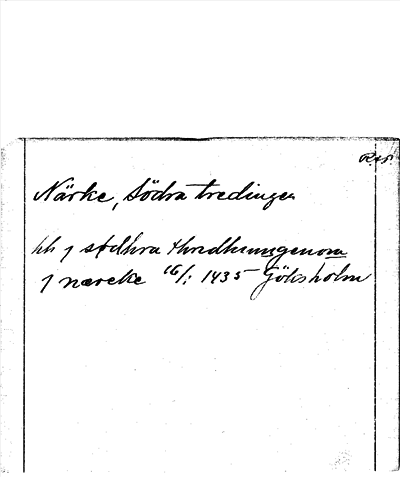 Närke, Södra tredingen
hh j södhra thredhiungenom
j næreke 16/1 1435 Göksholm